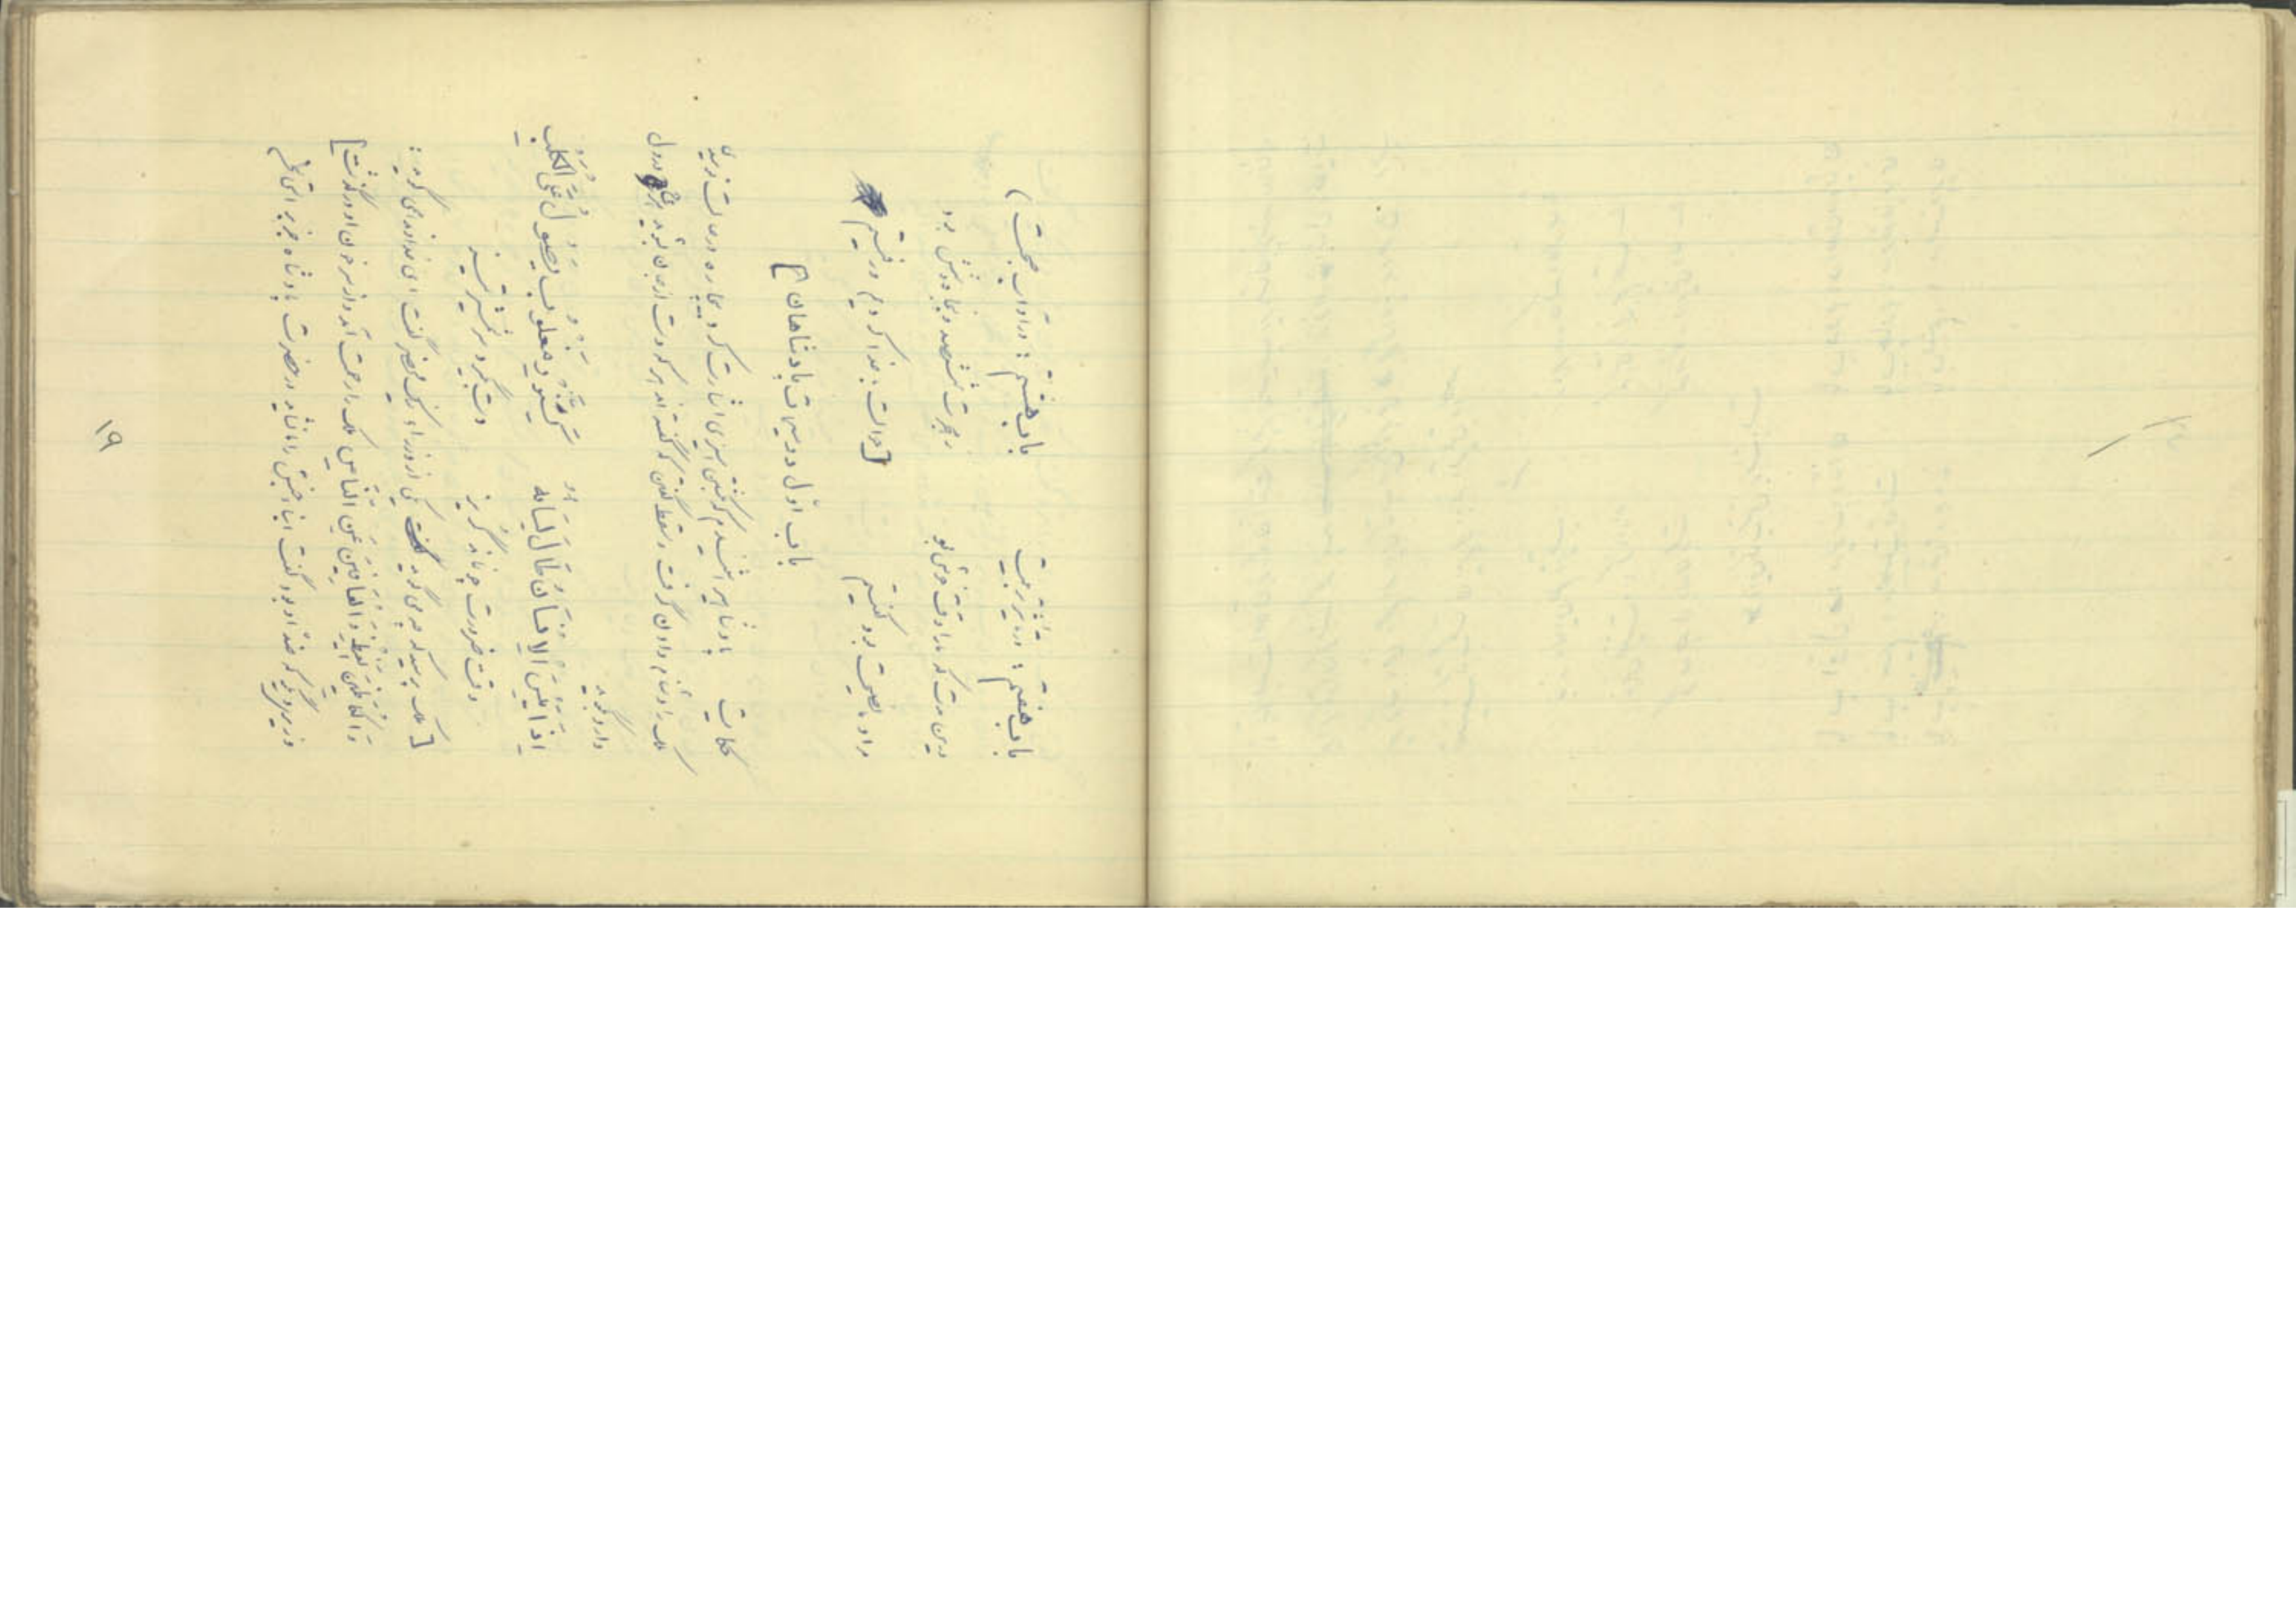 باب هفتم: در تأثیر تربیت     باب هشتم: در آداب صحبت)
درین مدت که ما را وقت خوش بود     ز هجرت ششصد و پنجاه و شش بود
مراد ما نصیحت بود گفتیم     [حوالت با خدا کردیم و رفتیم]
باب اوّل در سیرت پادشاهان]
حکایت     پادشاهی را شنیدم که بکشتن اسیری اشارت کرد بیچاره در حالت نومیدی
ملک را دشنام دادن گرفت و سقط گفتن که گفته اند هر که دست از جان بشوید هرچه در دل
دارد بگوید
إِذَا یَئِسَ الْإِنْسَانُ طَالَ لِسَانُهُ     کَسِنَّوْرٍ مَغْلُوبٍ یَصُولُ عَلَی الْکَلْبِ
وقت ضرورت چو نماند گریز     دست بگیرد سر شمشیر تیز
[ملک پرسید که چه می گوید یکی از وزراء نیک محضر گفت ای خداوند می گوید:
وَالْکَاظِمِینَ الْغَیْظَ وَالْعَافِینَ عَنِ النَّاسِ ملک را رحمت آمد و از سر خون او درگذشت]
وزیر دیگر که ضدّ او بود گفت ابنای جنس ما را نشاید در حضرت پادشاه جز براستی
۱۹